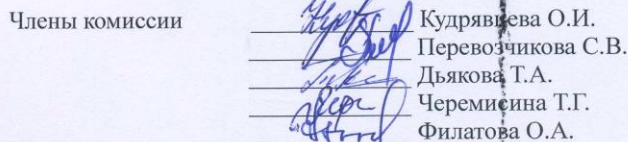 Члены комиссии Кудрявцева О.И.
Перевозчикова С.В.
Дьякова Т.А.
Черемисина Т.Г.
Филатова О.А.